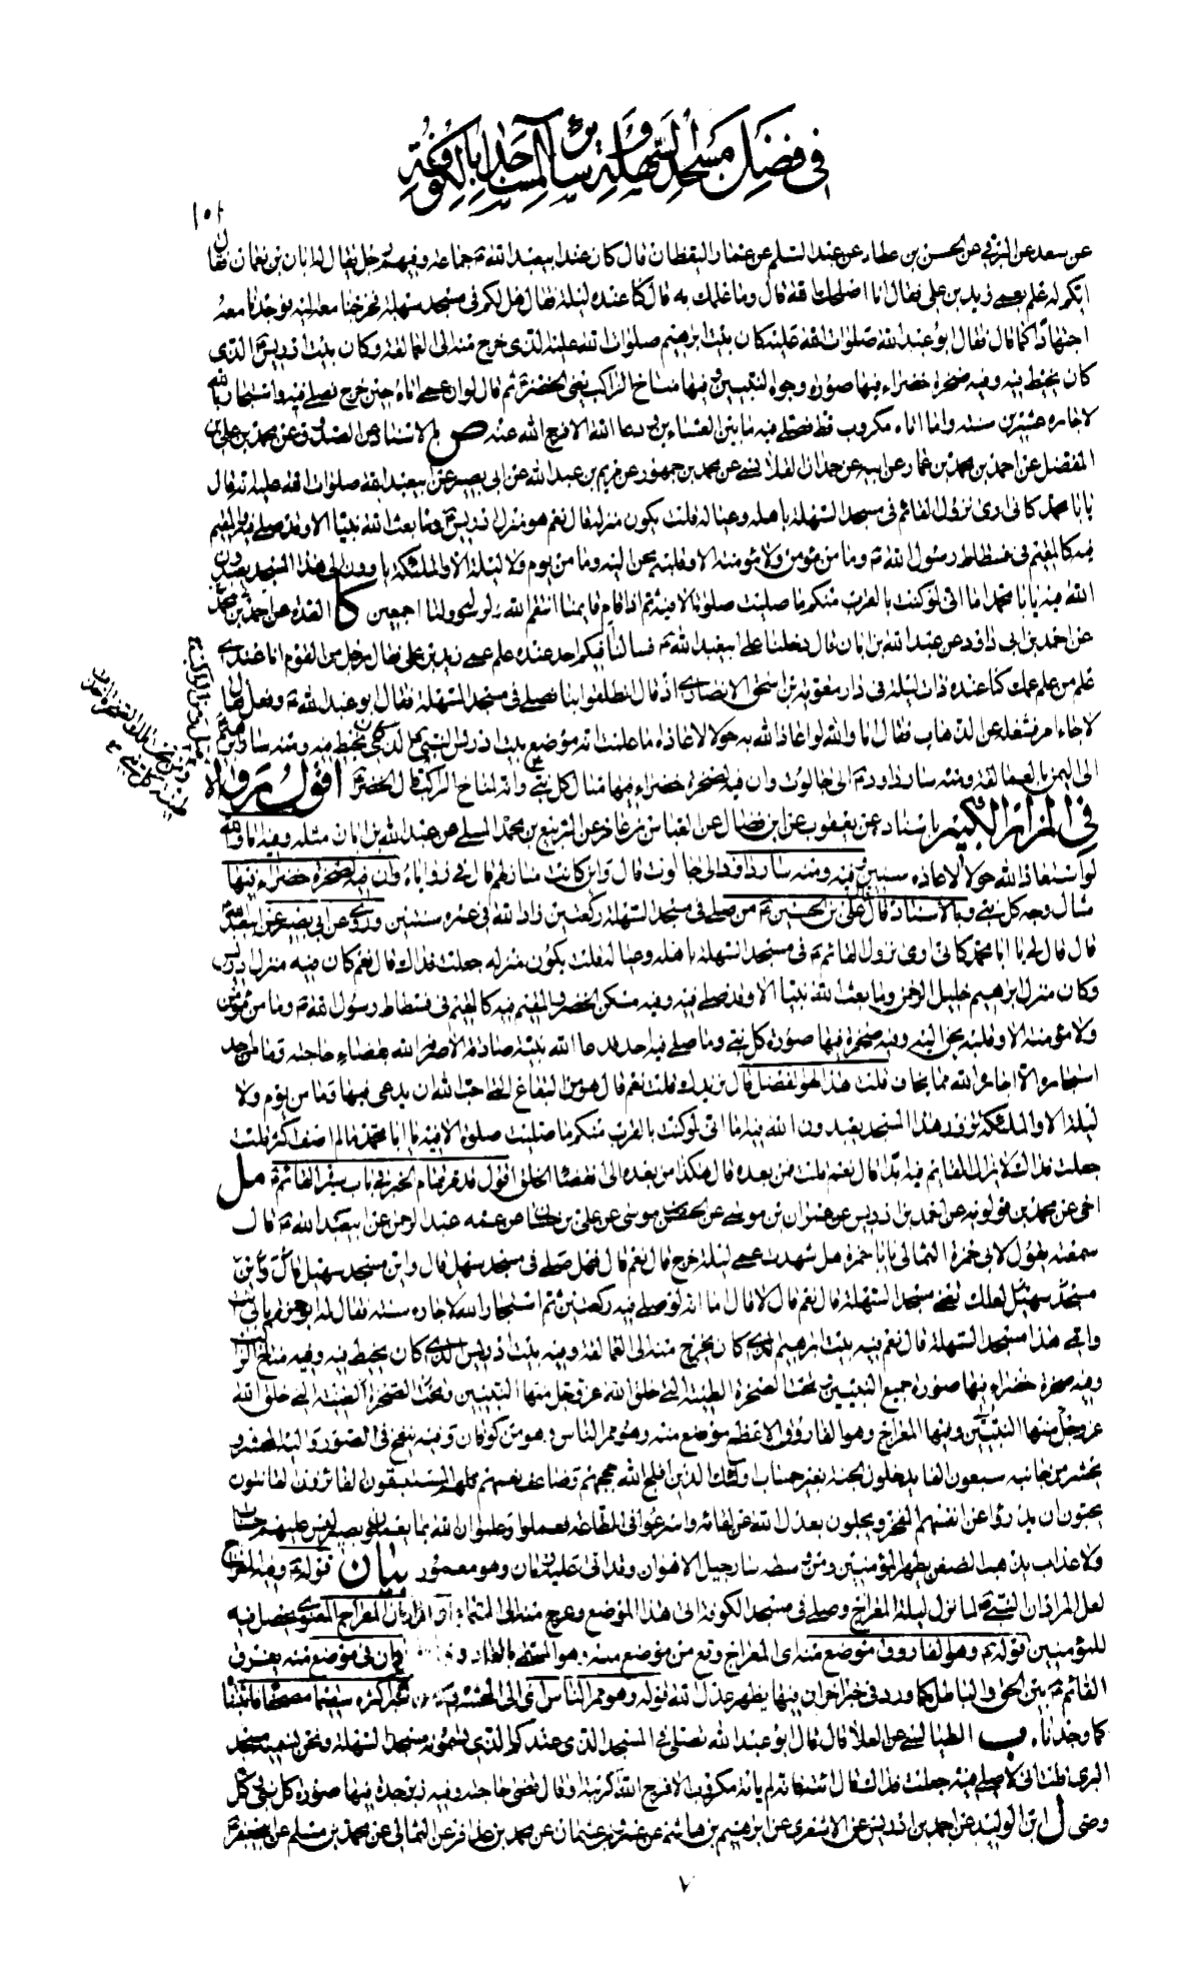 في فضل مسجد السهلة وسائر المساجد بالكوفة
١٥١
عن سعد عن البرقي عن الحسن بن عطاء عن عبد السلم عن عمار اليقظان قال كان عند ابيعبد الله ع جماعة وفيهم رجل يقال له ابان بن نعمان فقال
ايكم له علم بعمي زيد بن علي فقال انا اصلحك الله قال وما علمك به قال كنا عنده ليلة فقال هل لكم في مسجد سهلة فخرجنا معه اليه فوجدنا معه
اجتهادا كما قال فقال ابو عبد الله صلوات الله عليه كان بيت ابرهيم صلوات الله عليه الذي خرج منه الى العمالقة وكان بيت ادريس ع الذي
كان يخيط فيه وفيه صخرة خضراء فيها صورة وجوه النبيين وفيها مناخ الراكب يعني الخضر ع ثم قال لو ان عمي اتاه حين خرج فصلى فيه واستجار بالله
لاجاره عشرين سنة وما اتاه مكروب قط فصلى فيه ما بين العشائين ودعا الله الا فرج الله عنه ص بالاسناد عن الصدوق عن محمد بن علي بن
المفضل عن احمد بن محمد بن عمار عن ابيه عن حمدان القلانسي عن محمد بن جمهور عن مريم بن عبد الله عن ابي بصير عن ابيعبد الله صلوات الله عليه انه قال
يا با محمد كاني ارى نزول القائم في مسجد السهلة باهله وعياله قلت يكون منزله قال نعم هو منزل ادريس ع وما بعث الله نبيا الا وقد صلى فيه والمقيم
فيه كالمقيم في فسطاط رسول الله ص وما من مؤمن ولا مؤمنة الا وقلبه يحن اليه وما من يوم ولا ليلة الا والملئكة ياوون الى هذا المسجد يعبدون
الله فيه يا با محمد اما اني لو كنت بالقرب منكم ما صليت صلوة الا فيه ثم اذا قام قايمنا انتقم الله لرسوله ولنا اجمعين كا العدة عن احمد بن محمد
عن احمد بن ابي داود عن عبد الله بن ابان قال دخلنا على ابيعبد الله ع فسالنا افيكم احد عنده علم عمي زيد بن علي فقال رجل من القوم انا عندي
علم من علم عمك كنا عنده ذات ليلة في دار معوية بن اسحق الانصاري اذ قال انطلقوا بنا نصلي في مسجد السهلة فقال ابو عبد الله ع وفعل فقال
لا جاءه امر فشغله عن الذهاب فقال اما والله لو اعاذ الله به حولا لاعاذه ما علمت انه موضع بيت ادريس النبي ع الذي كان يخيط فيه ومنه سار ابرهيم
الى اليمن بالعمالقة ومنه سار داود ع الى جالوت وان فيه لصخرة خضراء فيها مثال كل نبي وانه لمناخ الراكب قال الخضر ع اقول روى
في المزار الكبير باسناده عن يعقوب عن ابن فضال عن العباس بن عامر عن الربيع بن محمد المسلي عن عبد الله بن ابان مثله وفيه اما والله
لو استعاذ الله حولا لاعاذه سنين وفيه ومنه سار داود الى جالوت قال واين كانت منازلهم قال في زواياه وان فيه لصخرة خضراء فيها
مثال وجه كل نبي وبالاسناد قال علي بن الحسين ع من صلى في مسجد السهلة ركعتين زاد الله في عمره سنتين وروي عن ابي بصير عن ابيعبد الله ع
قال قال لي يا ابا محمد كاني ارى نزول القائم ع في مسجد السهلة باهله وعياله قلت يكون منزله جعلت فداك قال نعم كان فيه منزل ادريس
وكان منزل ابرهيم خليل الرحمن وما بعث الله نبيا الا وقد صلى فيه وفيه مسكن الخضر والمقيم فيه كالمقيم في فسطاط رسول الله ص وما من مؤمن
ولا مؤمنة الا وقلبه يحن اليه وفيه صخرة فيها صورة كل نبي وما صلى فيه احد فدعا الله بنية صادقة الا صرفه الله بقضاء حاجته وما من احد
استجاره الا اجاره الله مما يخاف قلت هذا لهو الفضل قال نزيدك قلت نعم قال هو من البقاع التي احب الله ان يدعى فيها وما من يوم ولا
ليلة الا والملئكة تزور هذا المسجد يعبدون الله فيه اما اني لو كنت بالقرب منكم ما صليت صلوة الا فيه يا ابا محمد ما لم اصف اكثر قلت
جعلت فداك لا يزال القائم فيه ابدا قال نعم قلت فمن بعده قال هكذا من بعده الى انقضاء الخلق اقول قد مر تمام الخبر في باب سير القائم ع مل
اخي عن محمد بن قولويه عن احمد بن ادريس عن عمران بن موسى عن الحسن بن موسى عن علي بن حسان عن عمه عبد الرحمن عن ابيعبد الله ع قال
سمعته يقول لابي حمزة الثمالي يا با حمزة هل شهدت عمي ليلة خرج قال نعم قال فهل صلى في مسجد سهيل قال واين مسجد سهيل قال
مسجد سهيل لعلك تعني مسجد السهلة قال نعم قال لا قال اما انه لو صلى فيه ركعتين ثم استجار الله لاجاره سنة فقال له ابو حمزة بابي انت
وامي هذا مسجد السهلة قال نعم فيه بيت ابرهيم الذي كان يخرج منه الى العمالقة وفيه بيت ادريس الذي كان يخيط فيه وفيه مناخ الراكب
وفيه صخرة خضراء فيها صورة جميع النبيين وتحت الصخرة الطينة التي خلق الله عز وجل منها النبيين
عز وجل منها النبيين وفيها المعراج وهو الفاروق الاعظم موضع منه وهو ممر الناس وهو من كوفان وفيه ينفخ في الصور واليه المحشر
يحشر من جانبه سبعون الفا يدخلون الجنة بغير حساب اولئك الذين افلج الله حججهم وضاعف نعمهم فانهم المستبقون الفائزون القانتون
يحبون ان يدرؤا عن انفسهم الفخر ويجلون بعدل الله عن لقائه واسرعوا في الطاعة فعملوا وعلموا ان الله بما يعملون بصير ليس عليهم حساب
ولا عذاب يذهب الضغن يطهر المؤمنين ومن وسطه سار جبل الاهواز وقد اتى عليه زمان وهو معمور بيان قوله ع وفيه المعراج
لعل المراد ان النبي ص لما نزل ليلة المعراج وصلى في مسجد الكوفة اتى هذا الموضع وعرج منه الى السماء او المراد ان المعراج المعنوي يحصل فيه
للمؤمنين قوله ع وهو الفاروق موضع منه اي المعراج وقع من موضع منه
القائم ع بين الحق والباطل كما ورد في خبر اخر ان فيها يظهر عدل الله قوله وهو ممر الناس اي الى المحشر
كما وجدناه ب الطيالسي عن العلا قال قال ابو عبد الله تصلي في المسجد الذي عندكم الذي تسمونه مسجد السهلة ونحن نسميه مسجد
البري قلت اني لاصلي فيه جعلت فداك قال ائته فانه لم ياته مكروب الا فرج الله كربته او قال قضى حاجته وفيه زبرجدة فيها صورة كل نبي وكل
وصي ل ابن الوليد عن احمد بن ادريس عن الاشعري عن ابرهيم بن هاشم عن عمرو بن عثمان عن محمد بن عذافر عن الثمالي عن محمد بن مسلم عن ابيجعفر ع
٧